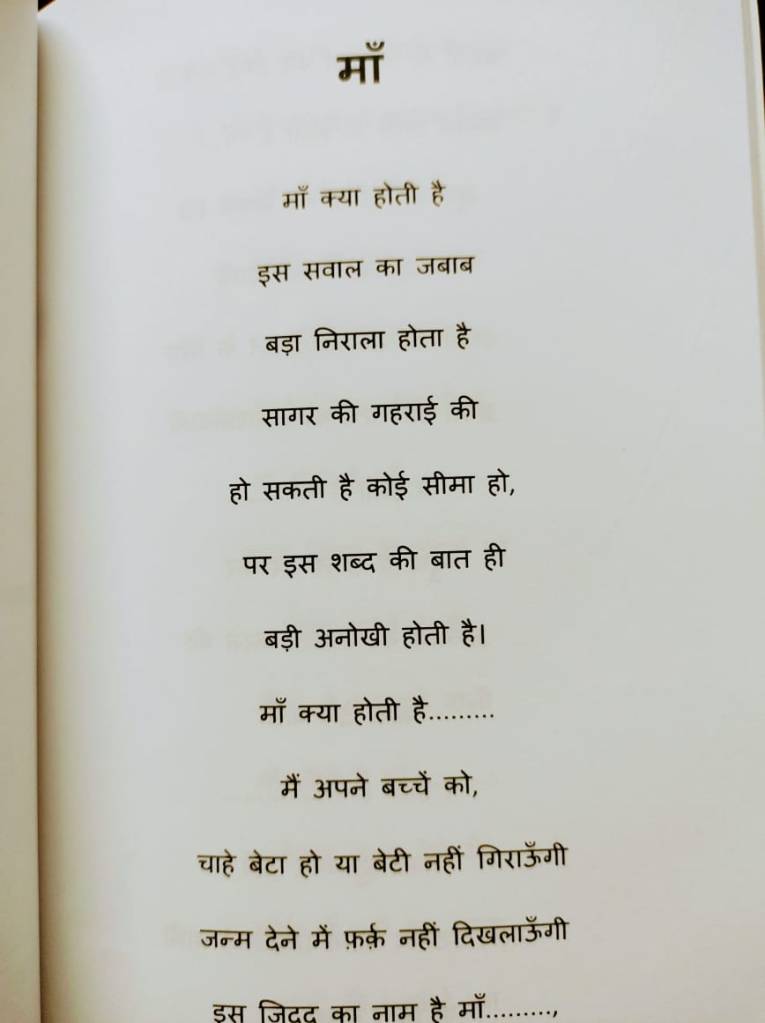 माँ
माँ क्या होती है
इस सवाल का जबाब
बड़ा निराला होता है
सागर की गहराई की
हो सकती है कोई सीमा हो,
पर इस शब्द की बात ही
बड़ी अनोखी होती है।
माँ क्या होती है.........
मैं अपने बच्चें को,
चाहे बेटा हो या बेटी नहीं गिराऊँगी
जन्म देने में फ़र्क़ नहीं दिखलाऊँगी
इस जिद्द का नाम है माँ.........,